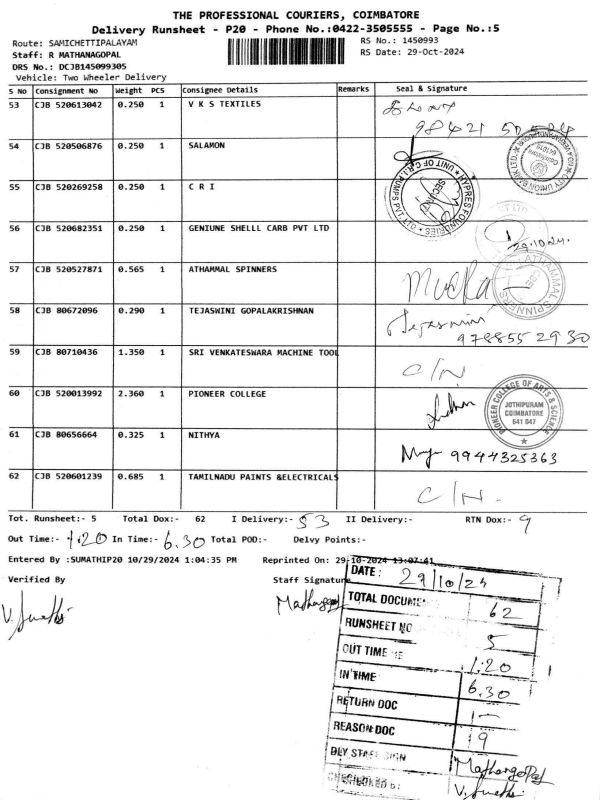 THE PROFESSIONAL COURIERS, COIMBATORE
Delivery Runsheet - P20 - Phone No.:0422-3505555 - Page No.:5
Route: SAMICHETTIPALAYAM
RS No.: 1450993
Staff: R MATHANAGOPAL
RS Date: 29-Oct-2024
DRS No.: DCJB145099305
Vehicle: Two Wheeler Delivery
S No Consignment No Weight PCS Consignee Details Remarks Seal & Signature
53 CJB 520613042 0.250 1 V K S TEXTILES
98421
54 CJB 520506876 0.250 1 SALAMON
CITY UNION BANK LTD.
55 CJB 520269258 0.250 1 C R I
UNIT OF C.R.I. PUMPS PVT LTD
SECURITY
56 CJB 520682351 0.250 1 GENIUNE SHELLL CARB PVT LTD
29.10.24.
57 CJB 520527871 0.565 1 ATHAMMAL SPINNERS
ATHAMMAL SPINNERS
58 CJB 80672096 0.290 1 TEJASWINI GOPALAKRISHNAN
Tejaswini
978855 29 30
59 CJB 80710436 1.350 1 SRI VENKATESWARA MACHINE TOOL
C/N.
60 CJB 520013992 2.360 1 PIONEER COLLEGE
PIONEER COLLEGE OF ARTS & SCIENCE
JOTHIPURAM
COIMBATORE
641 047
61 CJB 80656664 0.325 1 NITHYA
9944325363
62 CJB 520601239 0.685 1 TAMILNADU PAINTS &ELECTRICALS
C/N.
Tot. Runsheet:- 5 Total Dox:- 62 I Delivery:- 53 II Delivery:- RTN Dox:- 9
Out Time:- 1.20 In Time:- 6.30 Total POD:- Delvy Points:-
Entered By :SUMATHIP20 10/29/2024 1:04:35 PM Reprinted On: 29-10-2024 13:07:41
Verified By Staff Signature
V. Sumathi
Mathangopal
DATE : 29/10/24
TOTAL DOCUME 62
RUNSHEET NO 5
OUT TIME 1.20
IN TIME 6.30
RETURN DOC
REASON DOC 9
DLY STAFF SIGN Mathangopal
V. Sumathi